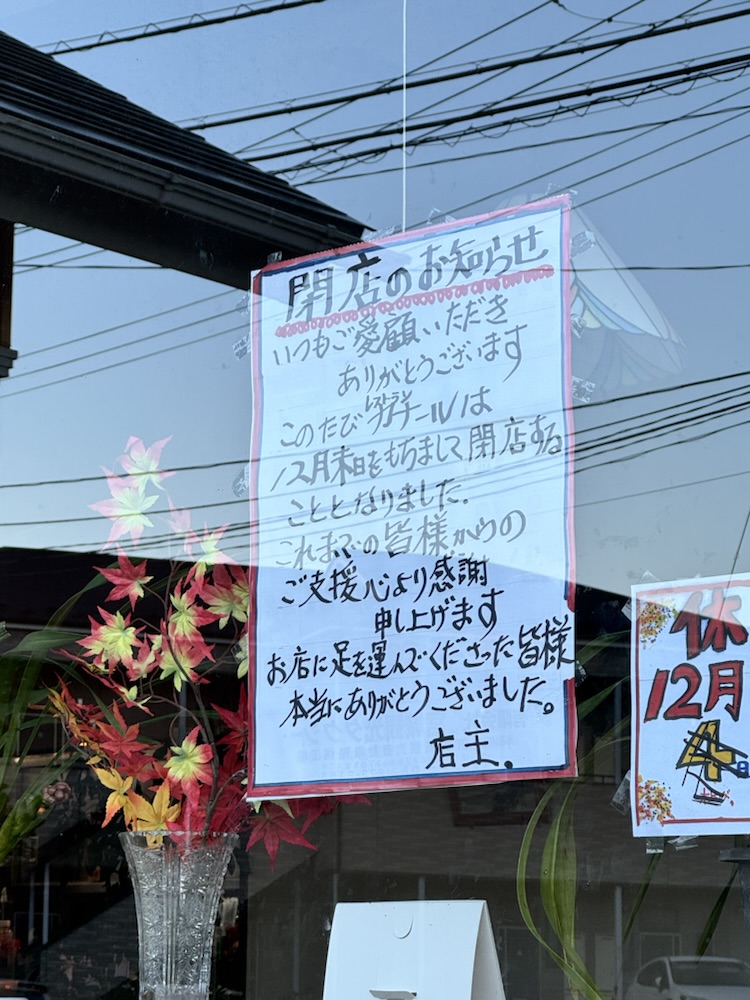 閉店のお知らせ
いつもご愛顧いただき
ありがとうございます
このたびレストランカナールは
12月末日をもちまして閉店する
こととなりました.
これまでの皆様からの
ご支援心より感謝
申し上げます
お店に足を運んでくださった皆様
本当にありがとうございました。
店主.
休
12月
4日